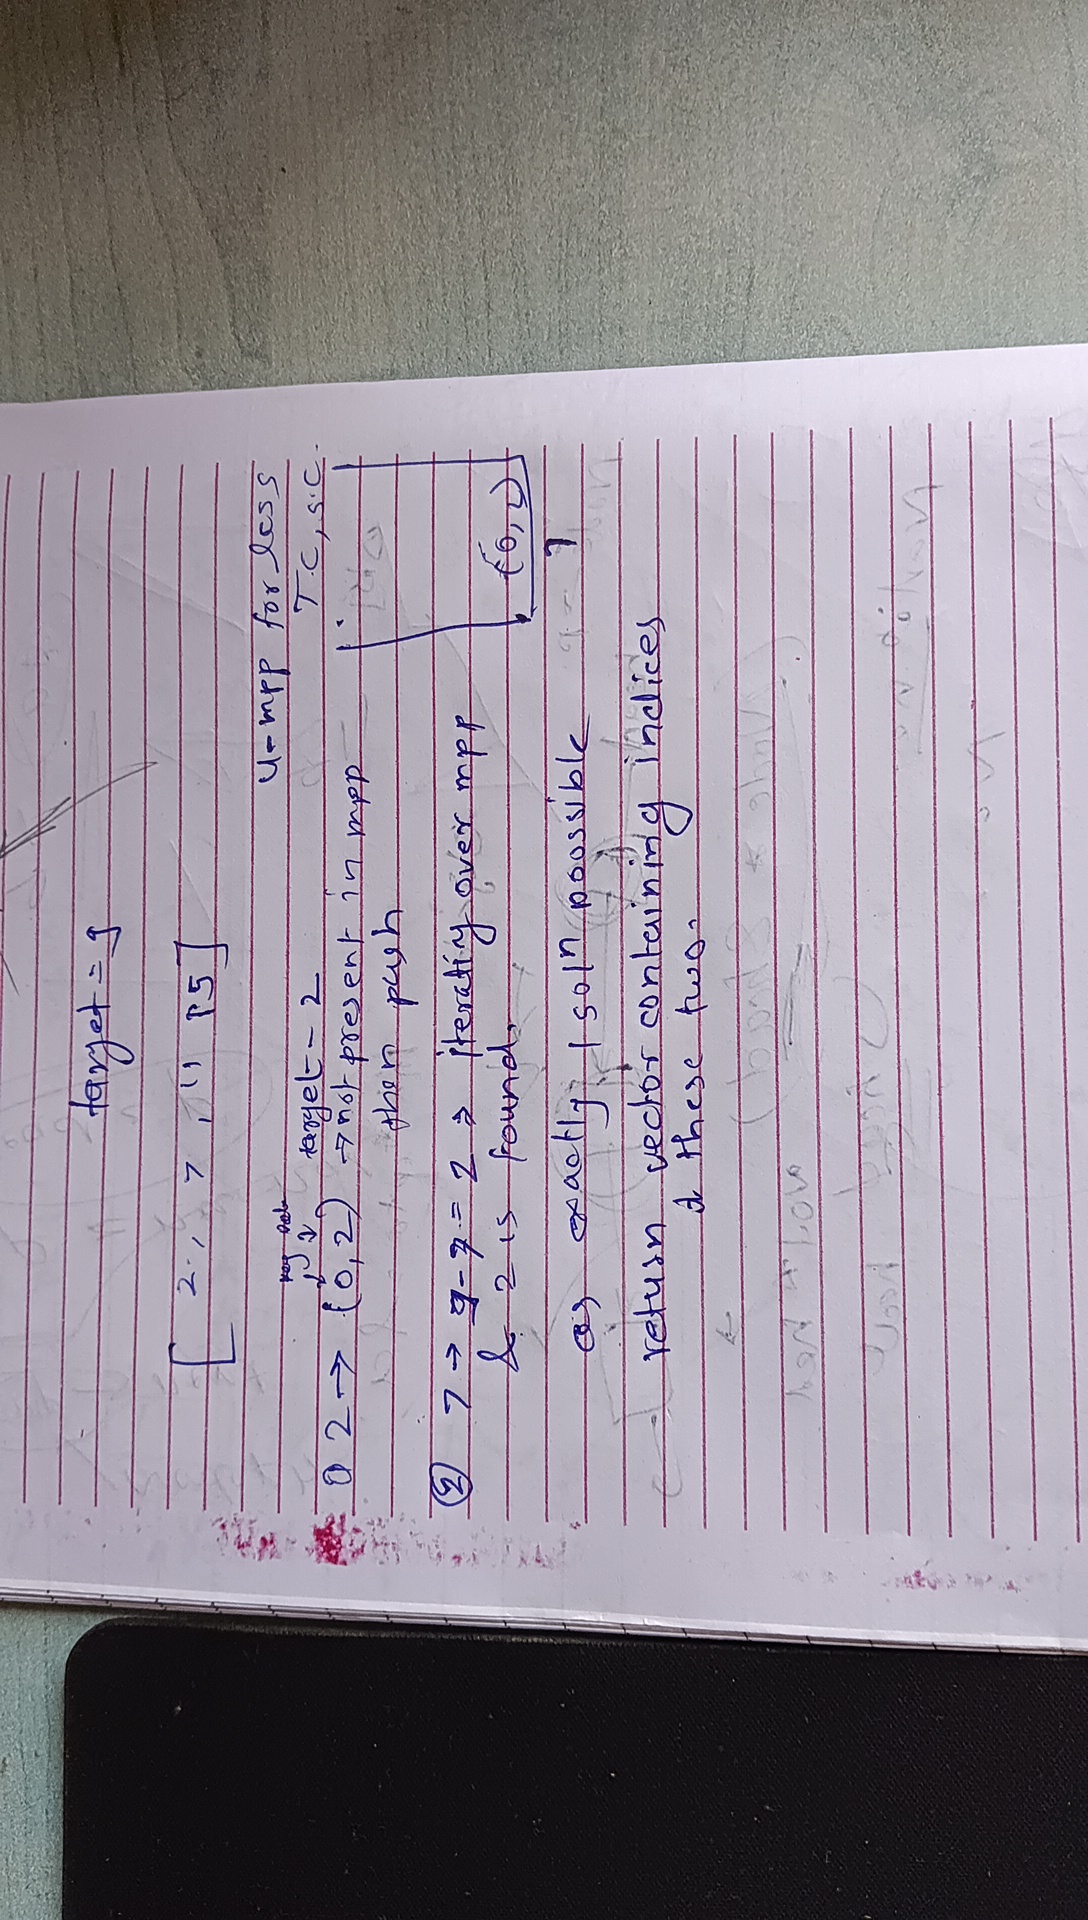 target = 9
[ 2 , 7 , 11 15 ]
u-mpp for less
T.C, S.C.
key val
target - 2
0 2 → (0, 2) → not present in mpp
then push
(0, 2)
② 7 → 9 - 7 = 2 → iterating over mpp
& 2 is found,
as exactly 1 solⁿ poossible
return vector containing indices
these two.